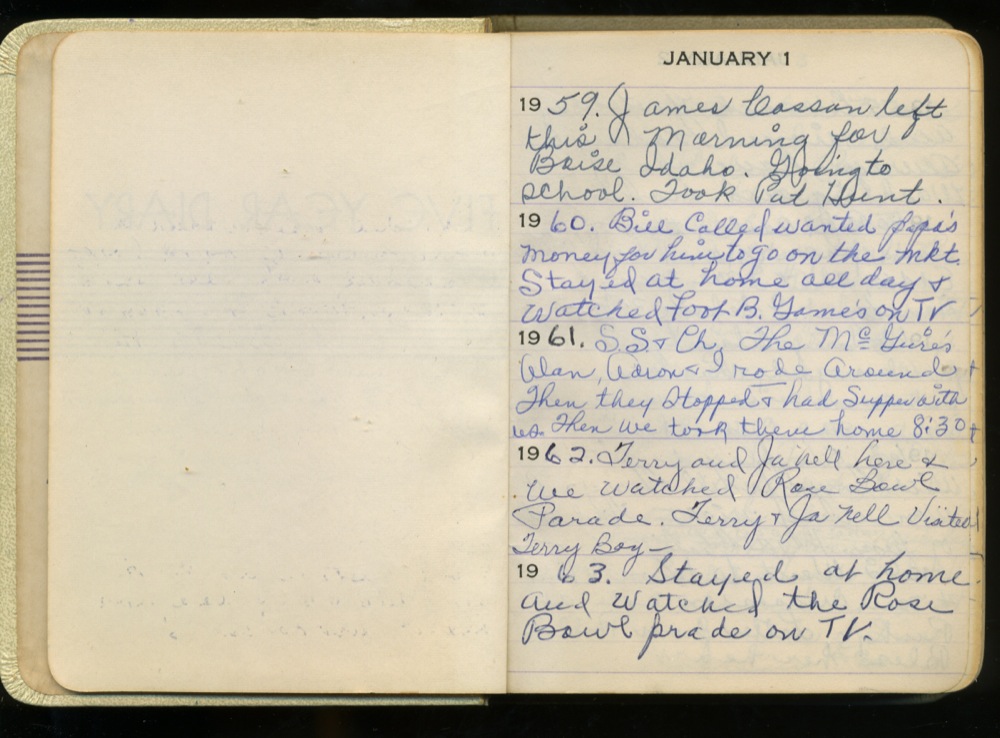 JANUARY 1
1959. James Cossan left
this Morning for
Boise Idaho. Going to
school. Took Pat Hunt.
1960. Bill Called wanted papa's
money for him to go on the mkt.
Stayed at home all day &
Watched Foot B. Game's on TV
1961. S.S. & Ch. The Mc Guire's
Alan, & I rode around &
Then they Stopped & had Supper with
us. Then we took them home 8:30
1962. Terry and Ja nell here &
we watched Rose Bowl
Parade. Terry & Ja nell Visited
Terry Boy —
1963. Stayed at home
and watched the Rose
Bowl prade on TV.